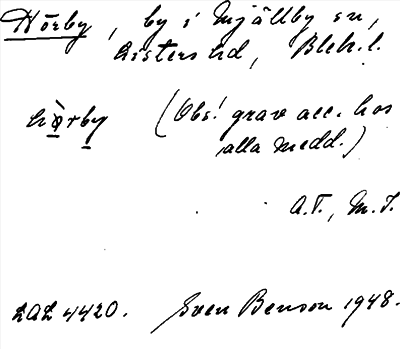 Hörby, by i Mjällby sn,
Listers hd, Blek. l.
hö̀rby (Obs! grav acc. hos
alla medd.)
A.T., M.T.
LAL 4420. Sven Benson 1948.